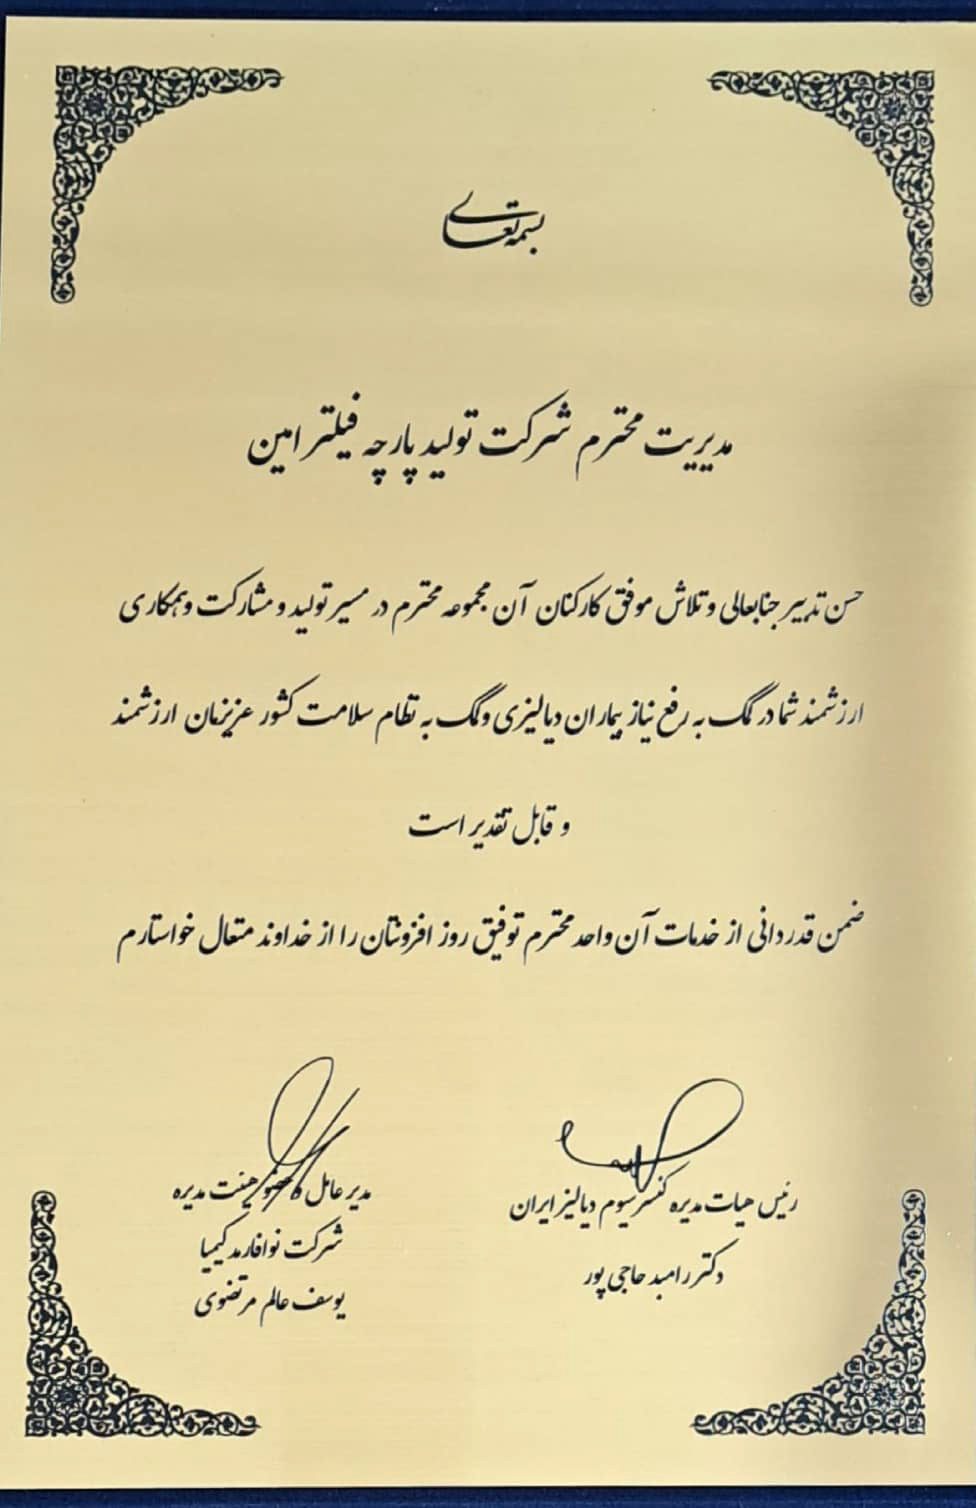 بسمه تعالی
مدیریت محترم شرکت تولید پارچه فیلتر امین
حسن تدبیر جنابعالی و تلاش موفق کارکنان آن مجموعه محترم در مسیر تولید و مشارکت و همکاری
ارزشمند شما در کمک به رفع نیاز بیماران دیالیزی و کمک به نظام سلامت کشور عزیزمان ارزشمند
و قابل تقدیر است
ضمن قدردانی از خدمات آن واحد محترم توفیق روز افزونتان را از خداوند متعال خواستارم
رئیس هیات مدیره کنسرسیوم دیالیز ایران
دکتر رامبد حاجی پور
مدیر عامل و عضو هیئت مدیره
شرکت نوافارمد کیمیا
یوسف عالم مرتضوی